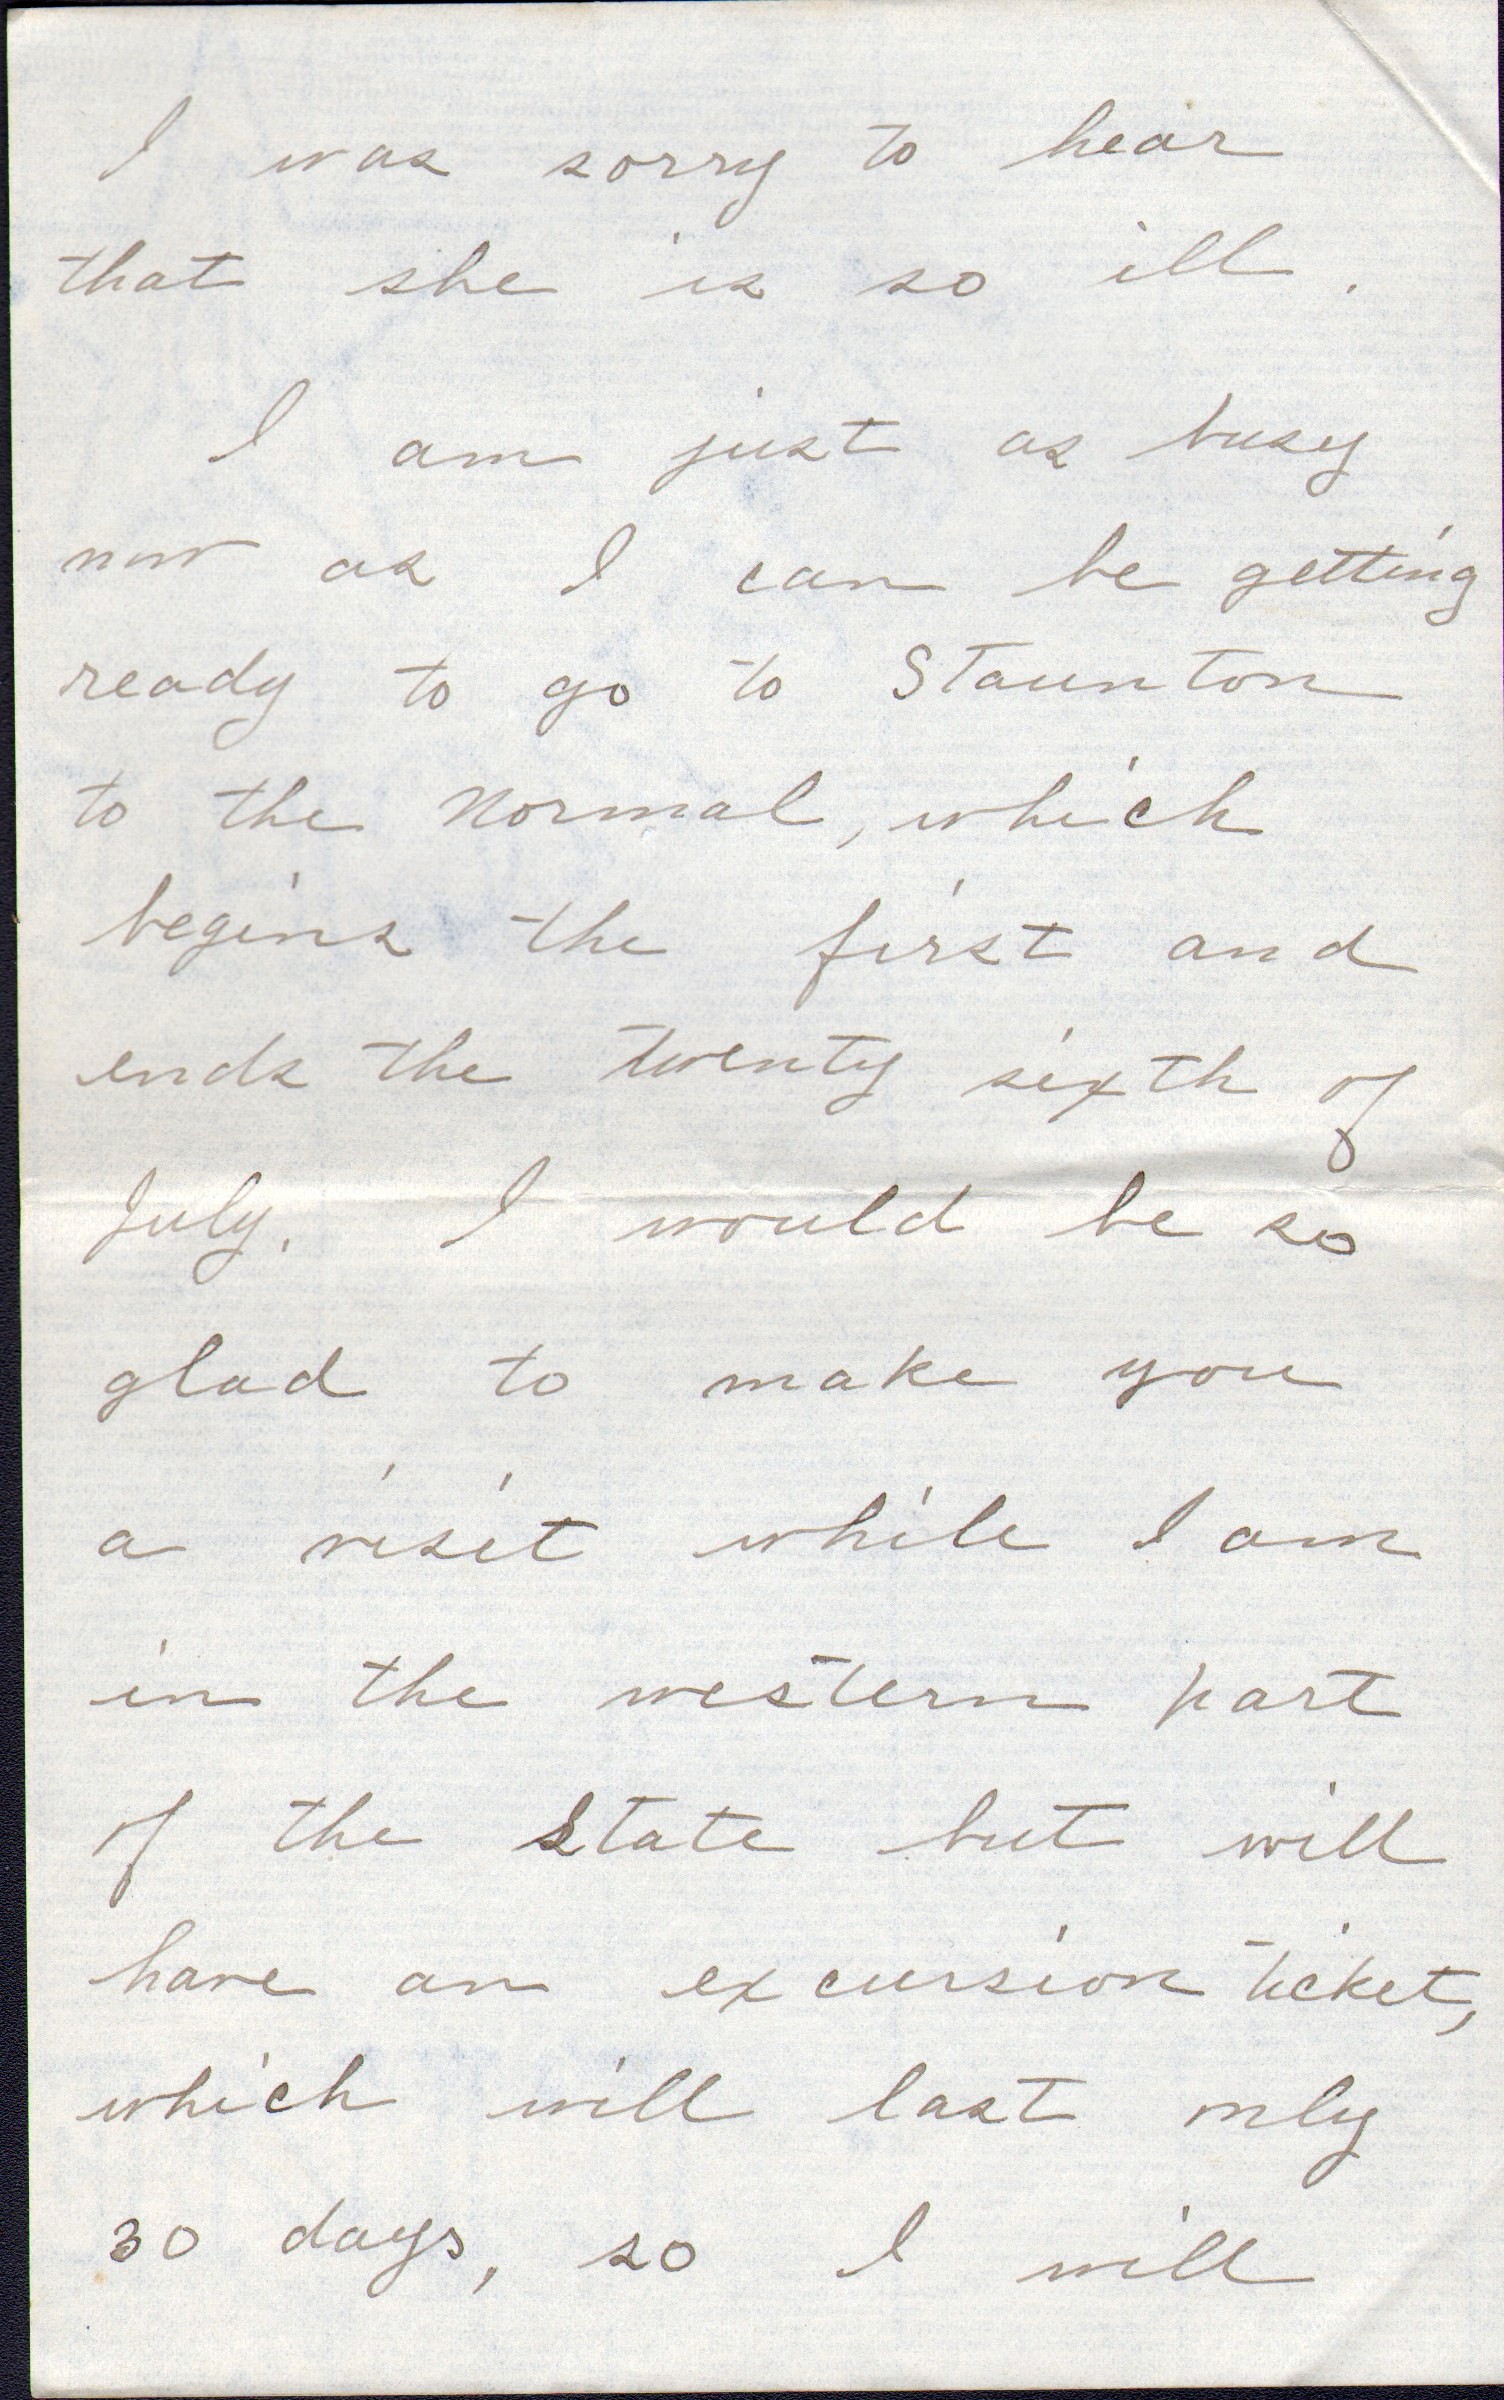 I was sorry to hear
that she is so ill.
I am just as busy
now as I can be getting
ready to go to Staunton
to the Normal, which
begins the first and
ends the twenty sixth of
July. I would be so
glad to make you
a visit while I am
in the western part
of the State but will
have an excursion ticket,
which will last only
30 days, so I will